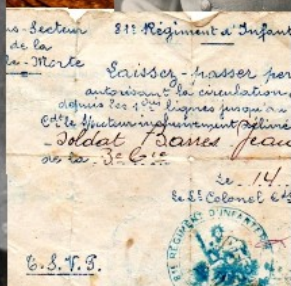 us-Secteur
de la
le-Morte
81e Régiment d'Infant
Laissez-passer per
autorisant la circulation
depuis les 1ères lignes jusqu'au
Cdt le Secteur
Soldat Barres Jean
de la 3e Cie
Le 14
Le Lt Colonel Cdt
81e REGIMENT D'INFANTERIE
T.S.V.P.